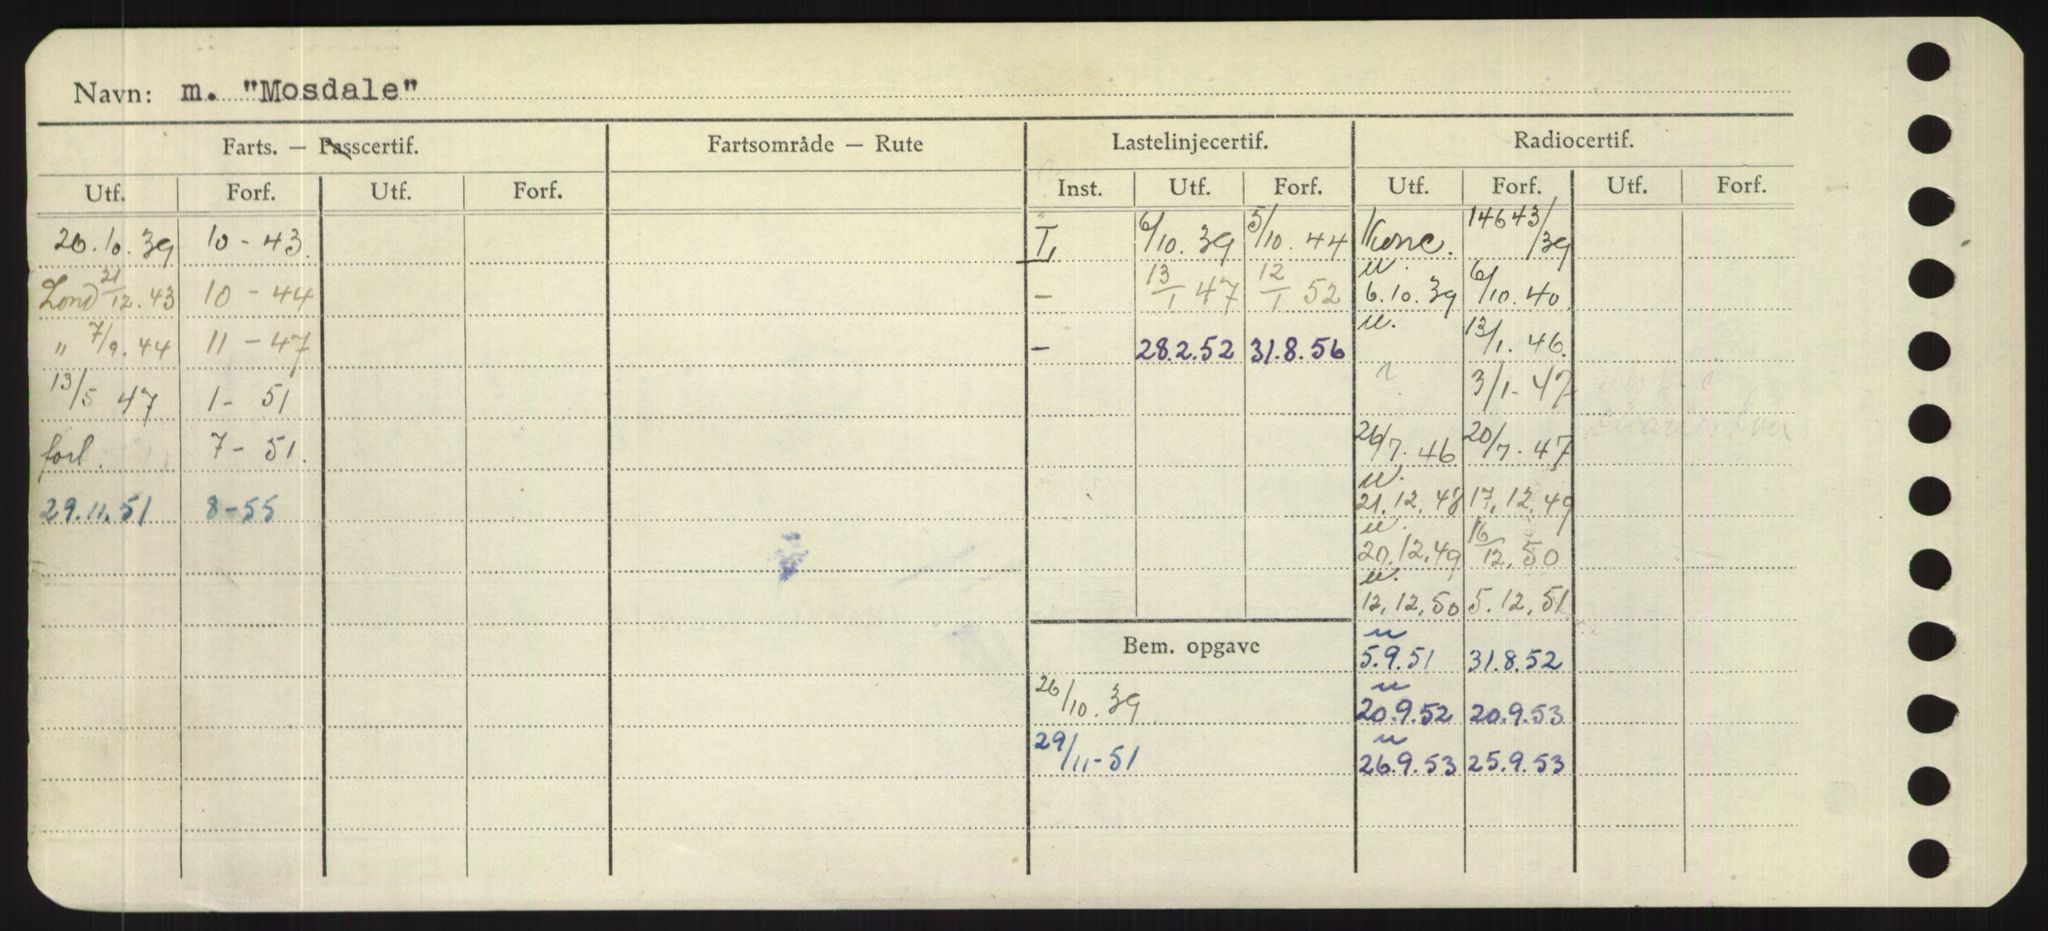 Navn: m. "Mosdale"
Farts. — Passcertif. Fartsområde — Rute Lastelinjecertif. Radiocertif.
Utf. Forf. Utf. Forf. Inst. Utf. Forf. Utf. Forf. Utf. Forf.
26.10.39 10-43 I, 6/10.39 5/10.44 Konc. 14643/39
Lond 21/12.43 10-44 — 13/1 47 12/1 52 u. 6.10.39 6/10.40
" 7/9.44 11-47 — 28.2.52 31.8.56 u. 13/1.46
13/5 47 1-51 3/1-47
forl. 7-51. 26/7.46 20/7-47
29.11.51 8-55 u. 21.12.48 17.12.49
u. 20.12.49 16/12.50
u. 12.12.50 5.12.51
Bem. opgave u 5.9.51 31.8.52
26/10.39 u 20.9.52 20.9.53
29/11-51 u 26.9.53 25.9.53